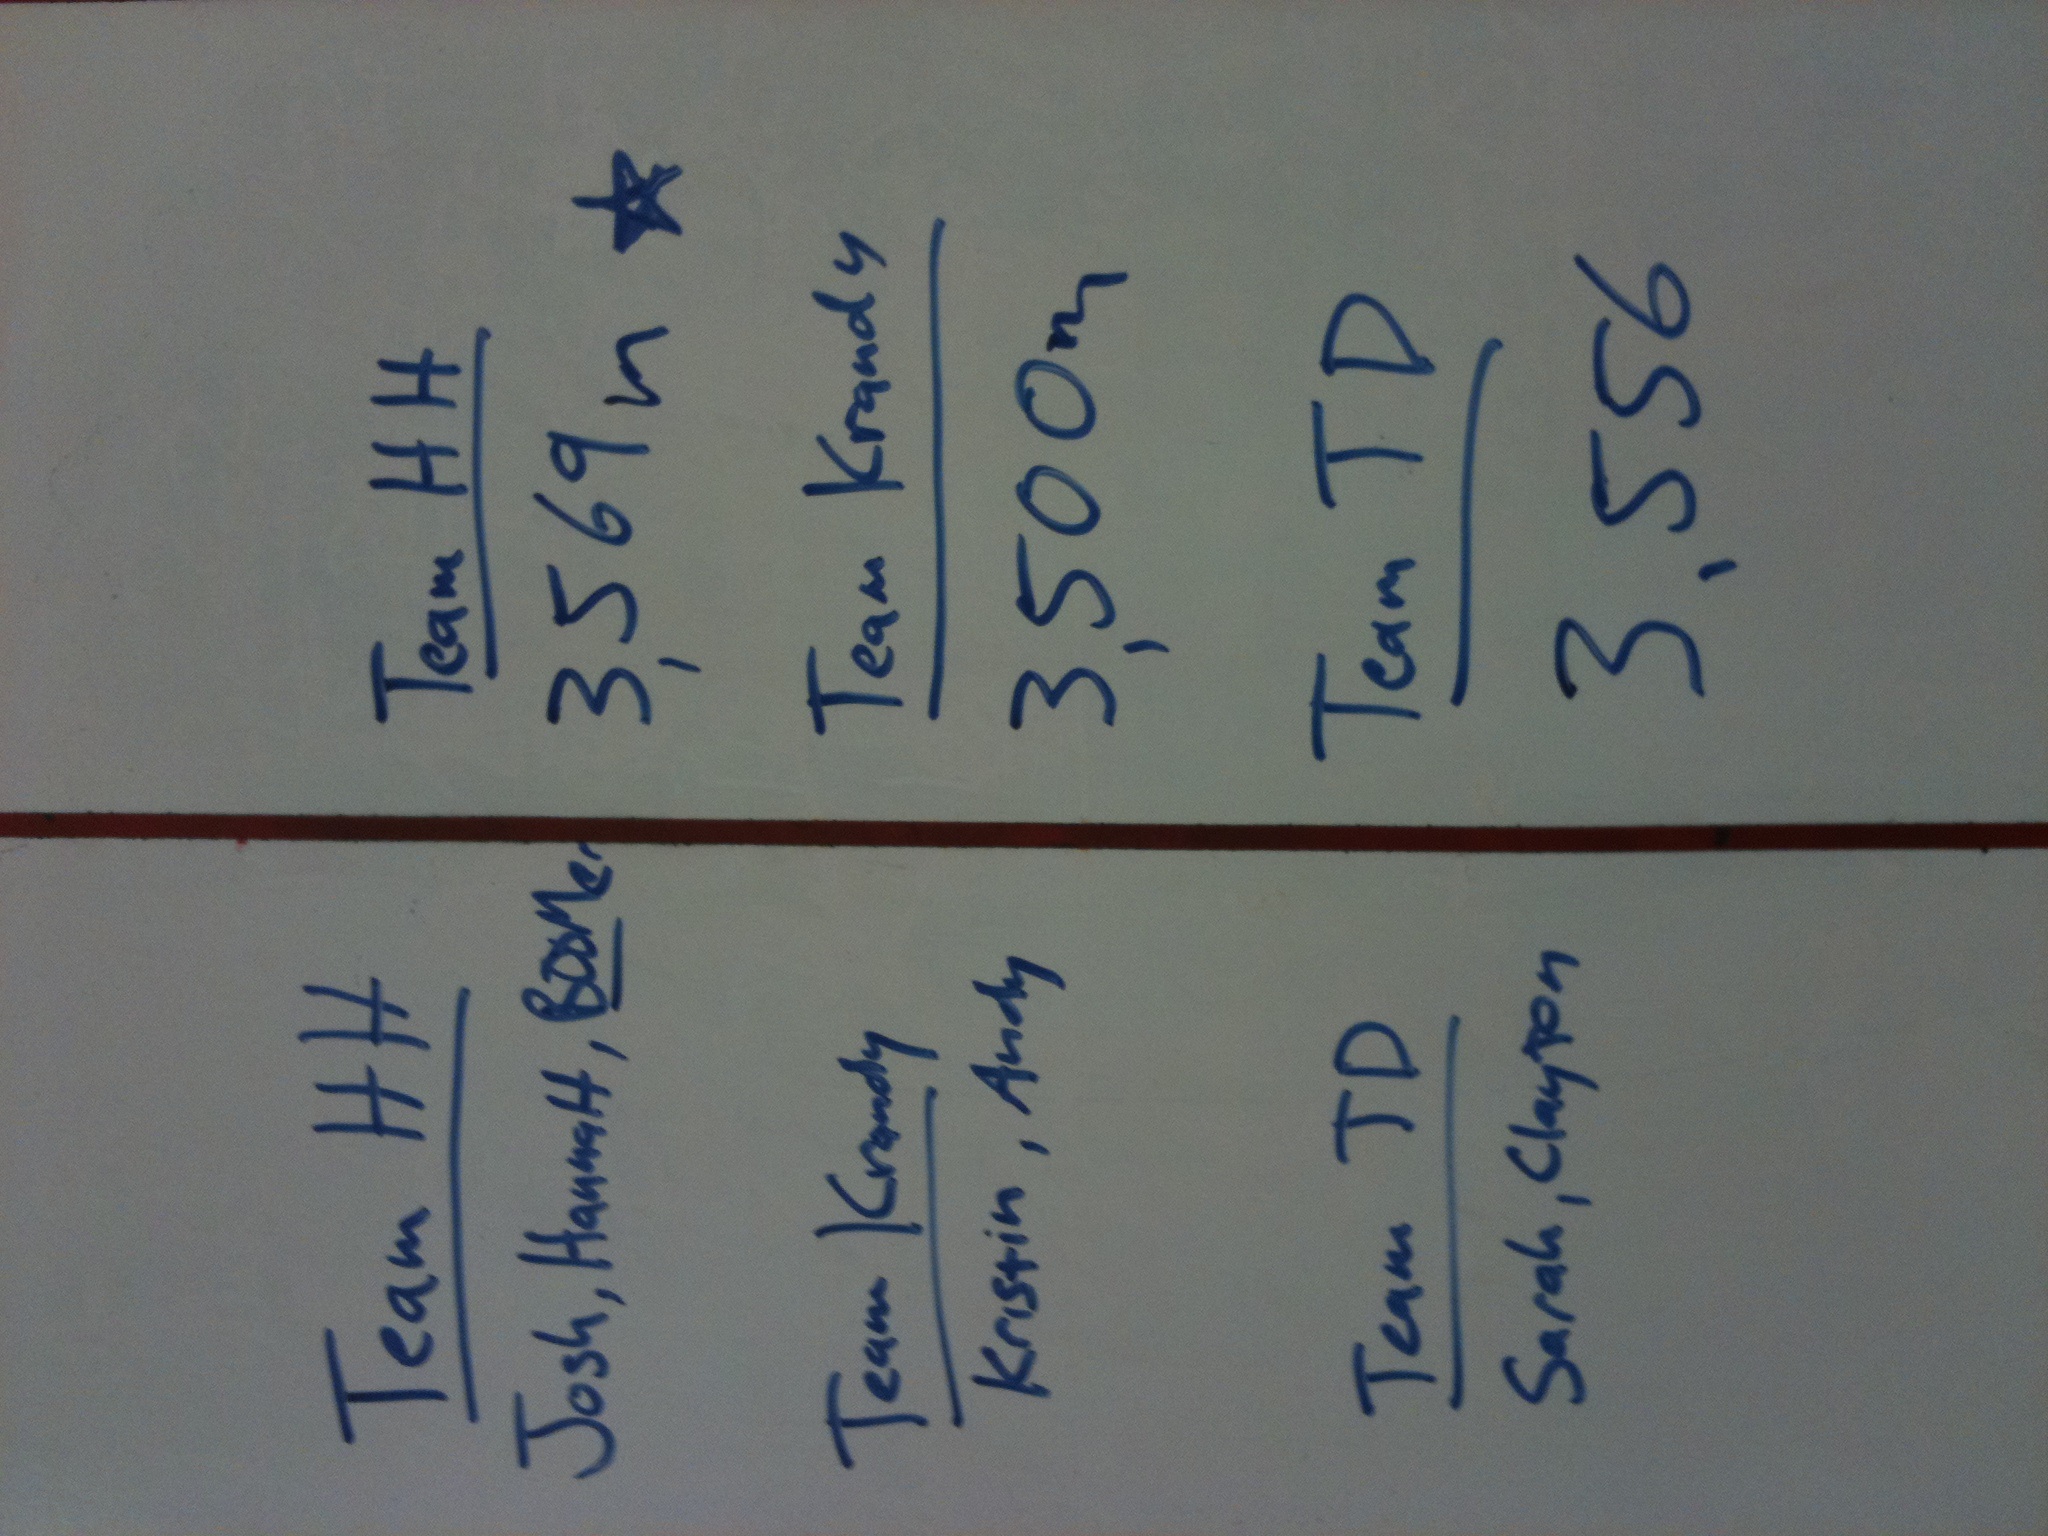 Team HH
Josh, HannaH, BOOMer
Team Krandy
Kristin, Andy
Team TD
Sarah, Clayton
Team HH
3,569m
Team Krandy
3,500m
Team TD
3,556